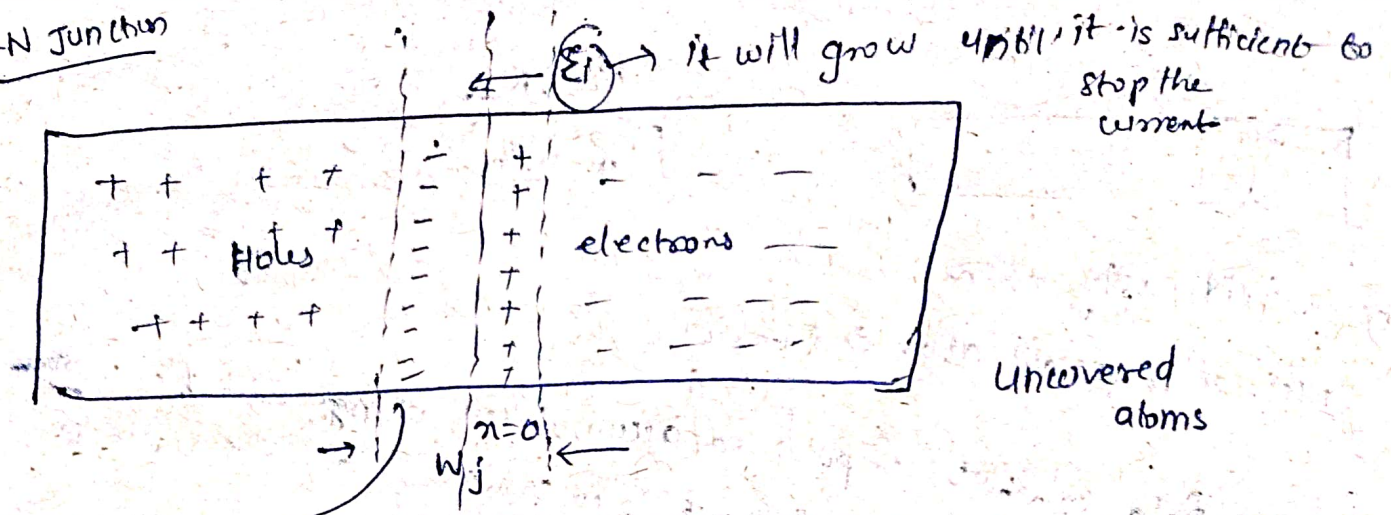 -N Junction
Ei → it will grow until it is sufficient to
stop the
current
+ + + + - + - - -
+ + Holes + - + electrons —
+ + + + - + - - - -
Uncovered
atoms
x=0
Wj